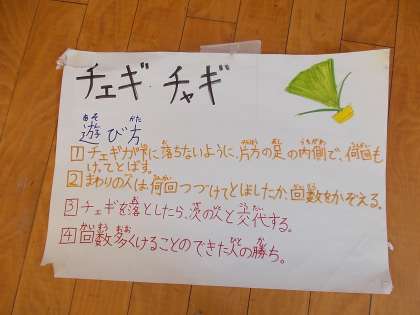 チェギ チャギ
遊び方
1 チェギが床に落ちないように、片方の足の内側で、何回も
けってとばす。
2 まわりの人は、何回つづけてとばしたか、回数をかぞえる。
3 チェギを落としたら、次の人と交代する。
4 回数多くけることのできた人の勝ち。